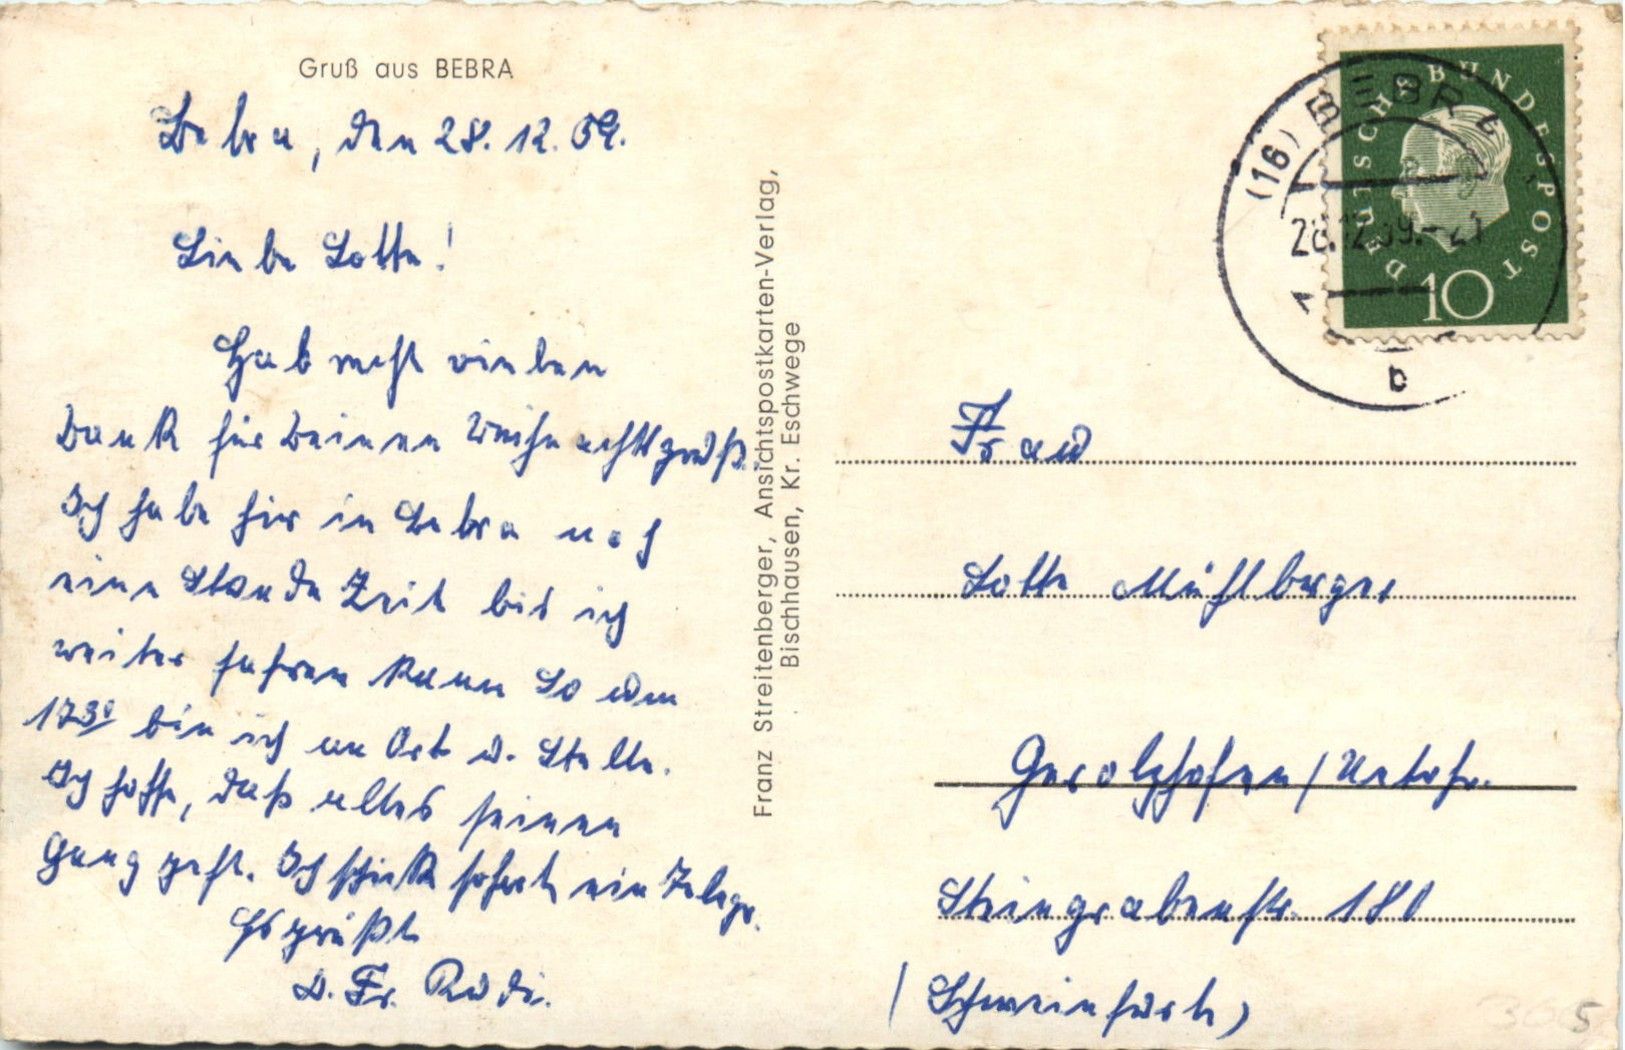 Gruß aus BEBRA
Bebra, den 28. 12. 59.
Liebe Lotte!
Hab recht vielen
Dank für Deinen Weihnachtsgruß.
Ich habe hier in Bebra noch
eine Stunde Zeit bis ich
weiter fahren kann So um
17 30 bin ich an Ort u. Stelle.
Ich hoffe, daß alles seinen
Gang geht. Ich schicke sofort ein Telegr.
Es grüßt
D. Fr. Rudi.
Franz Streitenberger, Ansichtspostkarten-Verlag,
Bischhausen, Kr. Eschwege
DEUTSCHE BUNDESPOST
10
(16) BEBRA
28.12.59.-21
b
Frau
Lotte Mühlberger
Gerolzhofen / Untefr.
Steingrabenstr. 181
(Schweinfurt)
5